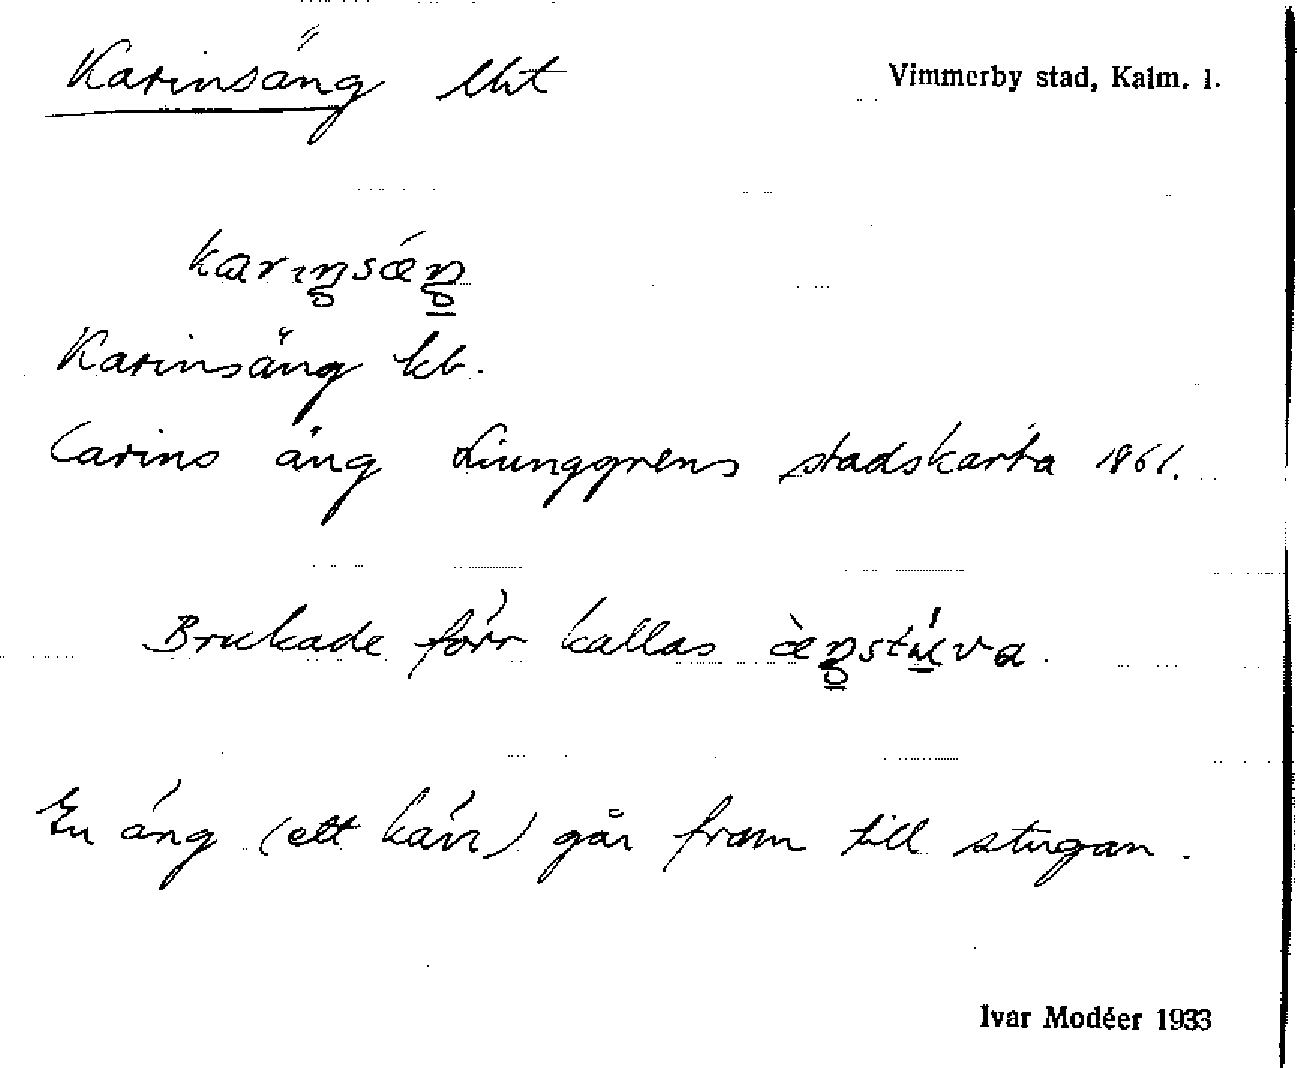 Karinsäng lht
Vimmerby stad, Kalm. l.
karıŋsǽŋ
Karinsäng kb.
Carins äng Liunggrens stadskarta 1861.
Brukade förr kallas æ̀ŋstúva.
En äng (ett kärr) går fram till stugan.
Ivar Modéer 1933